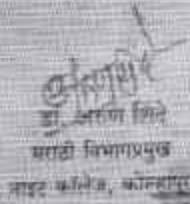 डॉ. अरुण शिंदे
मराठी विभागप्रमुख
नाइट कॉलेज, कोल्हापूर